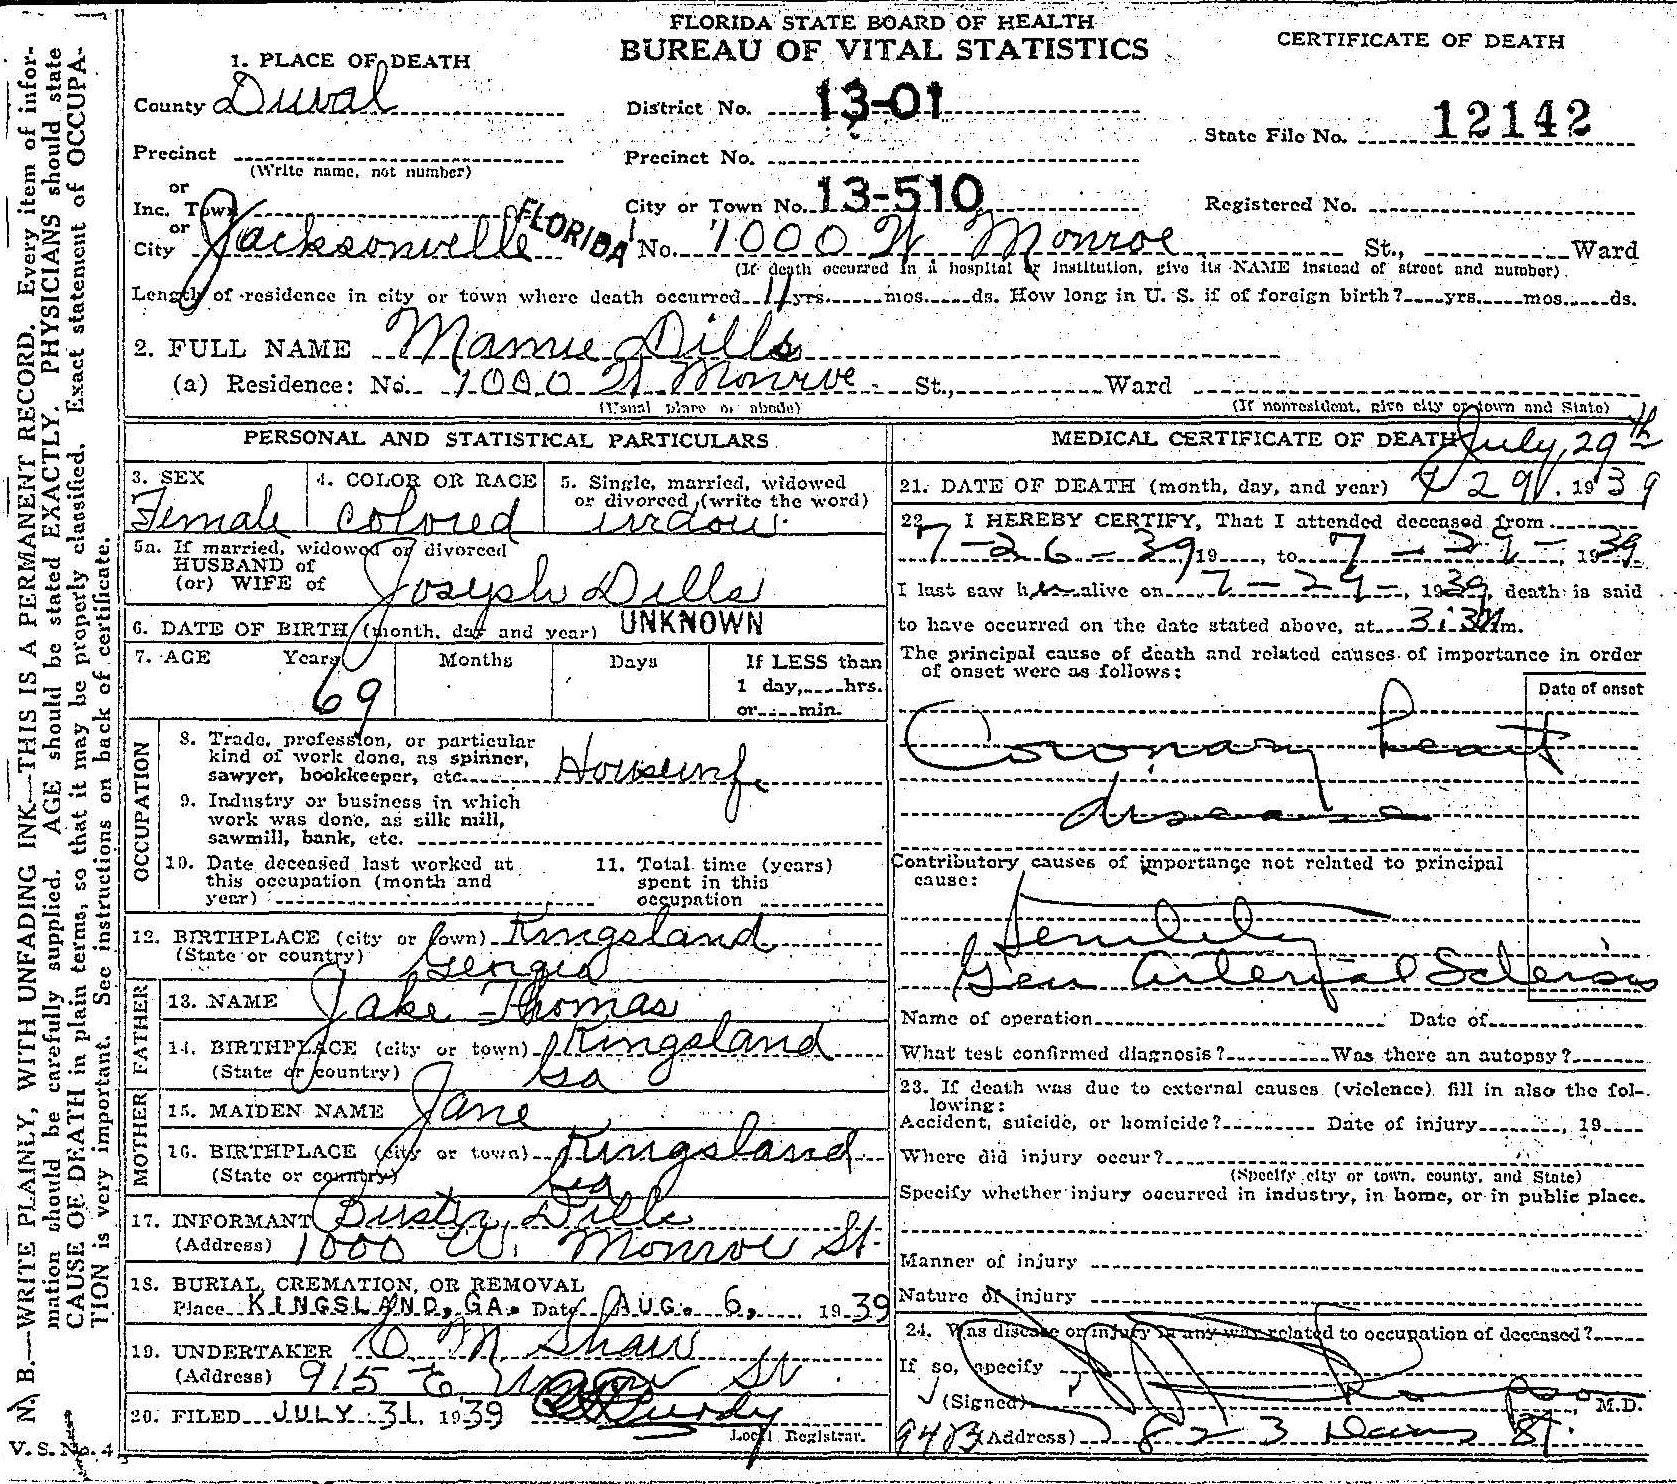 FLORIDA STATE BOARD OF HEALTH
BUREAU OF VITAL STATISTICS
CERTIFICATE OF DEATH
1. PLACE OF DEATH
County Duval
District No. 13-01
State File No. 12142
Precinct
(Write name, not number)
Precinct No.
or
Inc. Town
City or Town No. 13-510
Registered No.
or
City Jacksonville FLORIDA No. 1000 W Monroe St., Ward
(If death occurred in a hospital or institution, give its NAME instead of street and number).
Length of residence in city or town where death occurred 11 yrs. mos. ds. How long in U. S. if of foreign birth? yrs. mos. ds.
2. FULL NAME Mamie Dills
(a) Residence: No. 1000 W Monroe St., Ward
(Usual place of abode) (If nonresident, give city or town and State)
PERSONAL AND STATISTICAL PARTICULARS
3. SEX 4. COLOR OR RACE 5. Single, married, widowed
or divorced (write the word)
Female Colored widow
5a. If married, widowed or divorced
HUSBAND of
(or) WIFE of Joseph Dills
6. DATE OF BIRTH (month, day and year) UNKNOWN
7. AGE Years Months Days If LESS than
1 day, hrs.
or min.
69
OCCUPATION
8. Trade, profession, or particular
kind of work done, as spinner,
sawyer, bookkeeper, etc. Housewife
9. Industry or business in which
work was done, as silk mill,
sawmill, bank, etc.
10. Date deceased last worked at
this occupation (month and
year)
11. Total time (years)
spent in this
occupation
12. BIRTHPLACE (city or town) Kingsland
(State or country) Georgia
FATHER
13. NAME Jake Thomas
14. BIRTHPLACE (city or town) Kingsland
(State or country) Ga
MOTHER
15. MAIDEN NAME Jane
16. BIRTHPLACE (city or town) Kingsland
(State or country) Ga
17. INFORMANT Buster Dills
(Address) 1000 W. Monroe St.
18. BURIAL, CREMATION, OR REMOVAL
Place KINGSLAND, GA. Date AUG. 6, 1939
19. UNDERTAKER O M Shaw
(Address) 915 E Union St
20. FILED JULY 31, 1939
Local Registrar.
MEDICAL CERTIFICATE OF DEATH July 29th
21. DATE OF DEATH (month, day, and year) 7 29, 1939
22. I HEREBY CERTIFY, That I attended deceased from
7-26-39 19 , to 7-29-, 1939
I last saw her alive on 7-29-, 1939, death is said
to have occurred on the date stated above, at m.
The principal cause of death and related causes of importance in order
of onset were as follows:
Date of onset
Coronary heart
disease
Contributory causes of importance not related to principal
cause:
Senility
Gen Arterial Sclerosis
Name of operation Date of
What test confirmed diagnosis? Was there an autopsy?
23. If death was due to external causes (violence) fill in also the fol-
lowing:
Accident, suicide, or homicide? Date of injury , 19
Where did injury occur?
(Specify city or town, county, and State)
Specify whether injury occurred in industry, in home, or in public place.
Manner of injury
Nature of injury
24. Was disease or injury in any way related to occupation of deceased?
If so, specify
(Signed) , M.D.
(Address) 823 Davis St.
N. B.—WRITE PLAINLY, WITH UNFADING INK—THIS IS A PERMANENT RECORD. Every item of infor-
mation should be carefully supplied. AGE should be stated EXACTLY. PHYSICIANS should state
CAUSE OF DEATH in plain terms, so that it may be properly classified. Exact statement of OCCUPA-
TION is very important. See instructions on back of certificate.
V. S. No. 4